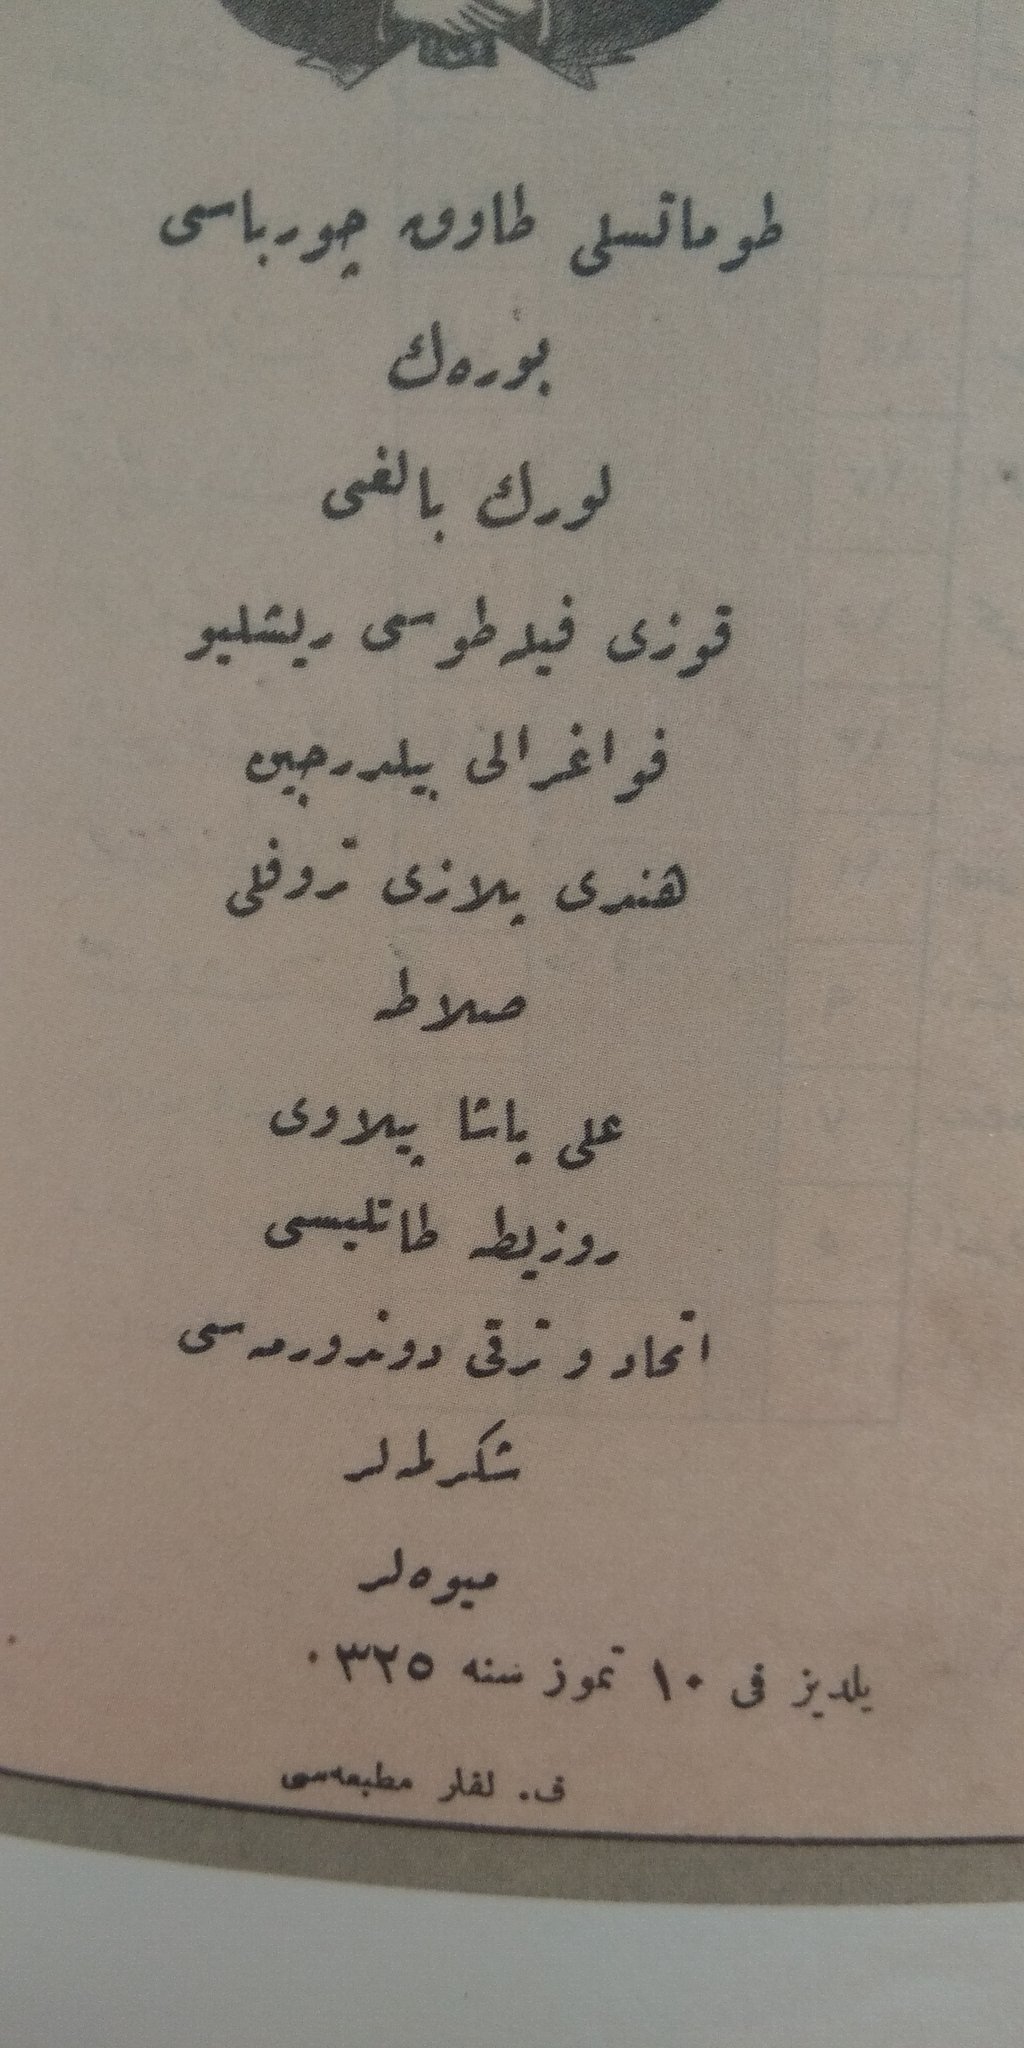 طوماتسلی طاوق چورباسی
بوره‌ك
لورك بالغی
قوزی فیله‌طوسی ریشلیو
فواغرالی بیلدرجین
هندی پلازی تروفلی
صلاطه
علی پاشا پیلاوی
روزیطه طاتلیسی
اتحاد و ترقی دوندورمه‌سی
شكرطه‌لر
میوه‌لر
یلدیز فی ١٠ تموز سنه ٣٢٥
ف. لفلر مطبعه‌سی